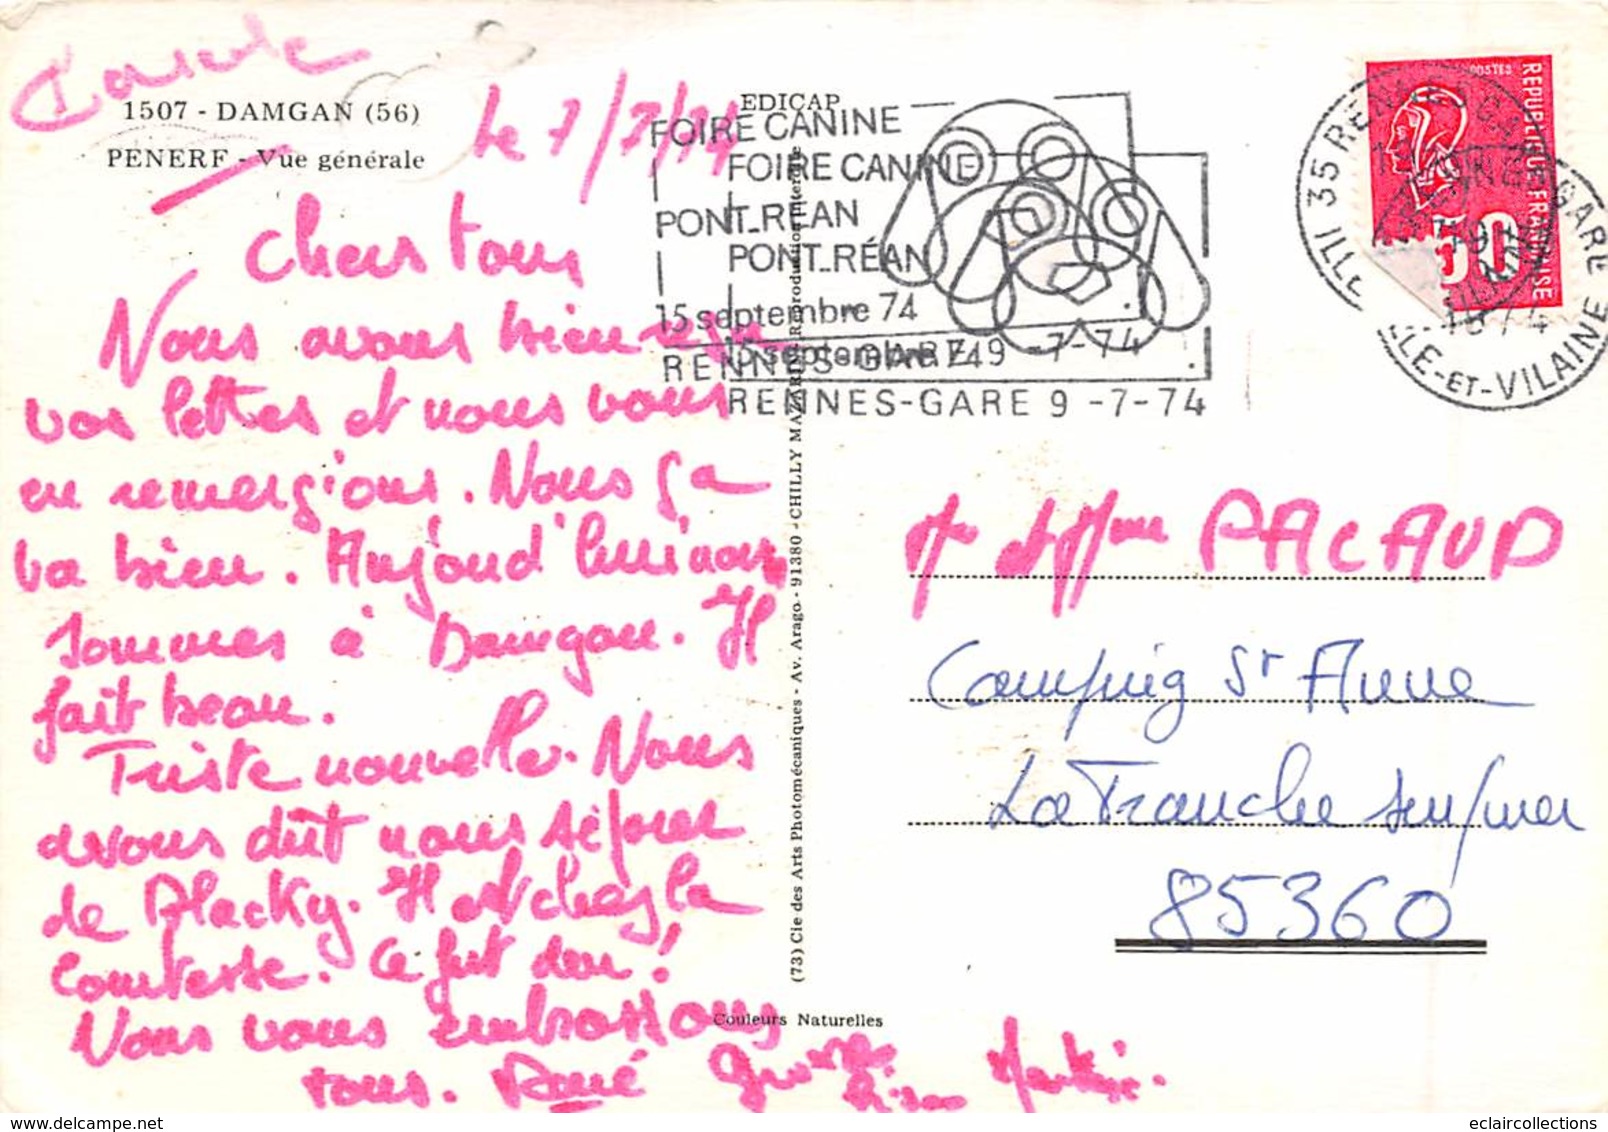 Carole
1507 - DAMGAN (56)
PENERF - Vue générale
Le 7/7/74
Chers tous
Nous avons bien reçu
vos lettres et nous vous
en remergions. Nous ça
va bien. Aujourd'hui nous
sommes à Damgan. Il
fait beau.
Triste nouvelle. Nous
avons dût nous séparer
de Blacky. Il est chez la
Comtesse. Ce fut dur!
Nous vous embrassons
tous. René
EDICAP
FOIRE CANINE
FOIRE CANINE
PONT_REAN
PONT_RÉAN
15 septembre 74
15 septembre 74
RENNES-GARE 9 -7-74
RENNES-GARE 9 -7-74
(73) Cie des Arts Photomécaniques - Av. Arago - 91380 - CHILLY MAZARIN
Couleurs Naturelles
POSTES
REPUBLIQUE FRANÇAISE
35 RENNES GARE
ILLE-ET-VILAINE
Mr et Mme PACAUD
Camping St Anne
La Tranche sur/mer
85360
eclaircollections